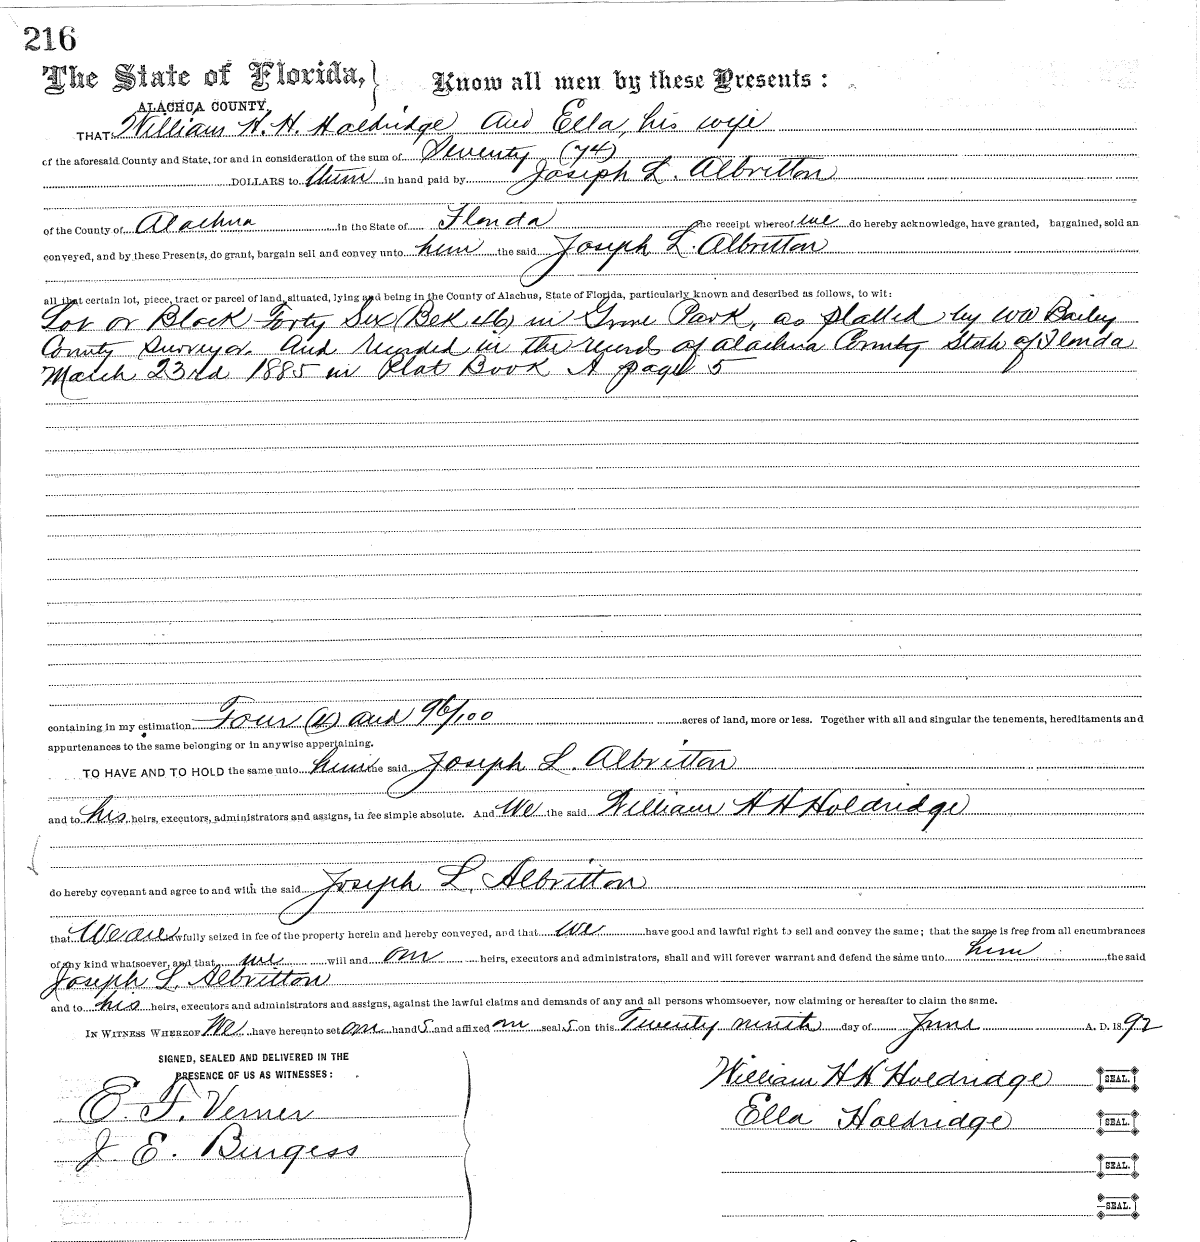 216
The State of Florida, Know all men by these Presents :
ALACHUA COUNTY.
THAT William H. H. Holdridge and Ella, his wife
of the aforesaid County and State, for and in consideration of the sum of Seventy (74)
DOLLARS to them in hand paid by Joseph L. Albritton
of the County of Alachua in the State of Florida the receipt whereof we do hereby acknowledge, have granted, bargained, sold an
conveyed, and by these Presents, do grant, bargain sell and convey unto him the said Joseph L. Albritton
all that certain lot, piece, tract or parcel of land, situated, lying and being in the County of Alachua, State of Florida, particularly known and described as follows, to wit:
Lot or Block Forty Six (Blk 46) in Grove Park, as platted by WW Bailey
County Surveyor. and recorded in the records of Alachua County State of Florida
March 23rd 1885 in Plat Book A page 5
containing in my estimation Four (4) and 96/100 acres of land, more or less. Together with all and singular the tenements, hereditaments and
appurtenances to the same belonging or in anywise appertaining.
TO HAVE AND TO HOLD the same unto him the said Joseph L. Albritton
and to his heirs, executors, administrators and assigns, in fee simple absolute. And We the said William H H Holdridge
do hereby covenant and agree to and with the said Joseph L. Albritton
that We are lawfully seized in fee of the property herein and hereby conveyed, and that we have good and lawful right to sell and convey the same; that the same is free from all encumbrances
of any kind whatsoever, and that we will and our heirs, executors and administrators, shall and will forever warrant and defend the same unto him the said
Joseph L. Albritton
and to his heirs, executors and administrators and assigns, against the lawful claims and demands of any and all persons whomsoever, now claiming or hereafter to claim the same.
IN WITNESS WHEREOF We have hereunto set our hand s and affixed our seal s on this Twenty ninth day of June A. D. 1892
SIGNED, SEALED AND DELIVERED IN THE
PRESENCE OF US AS WITNESSES:
William H H Holdridge SEAL.
E. T. Verner
Ella Holdridge SEAL.
J. E. Burgess
SEAL.
SEAL.